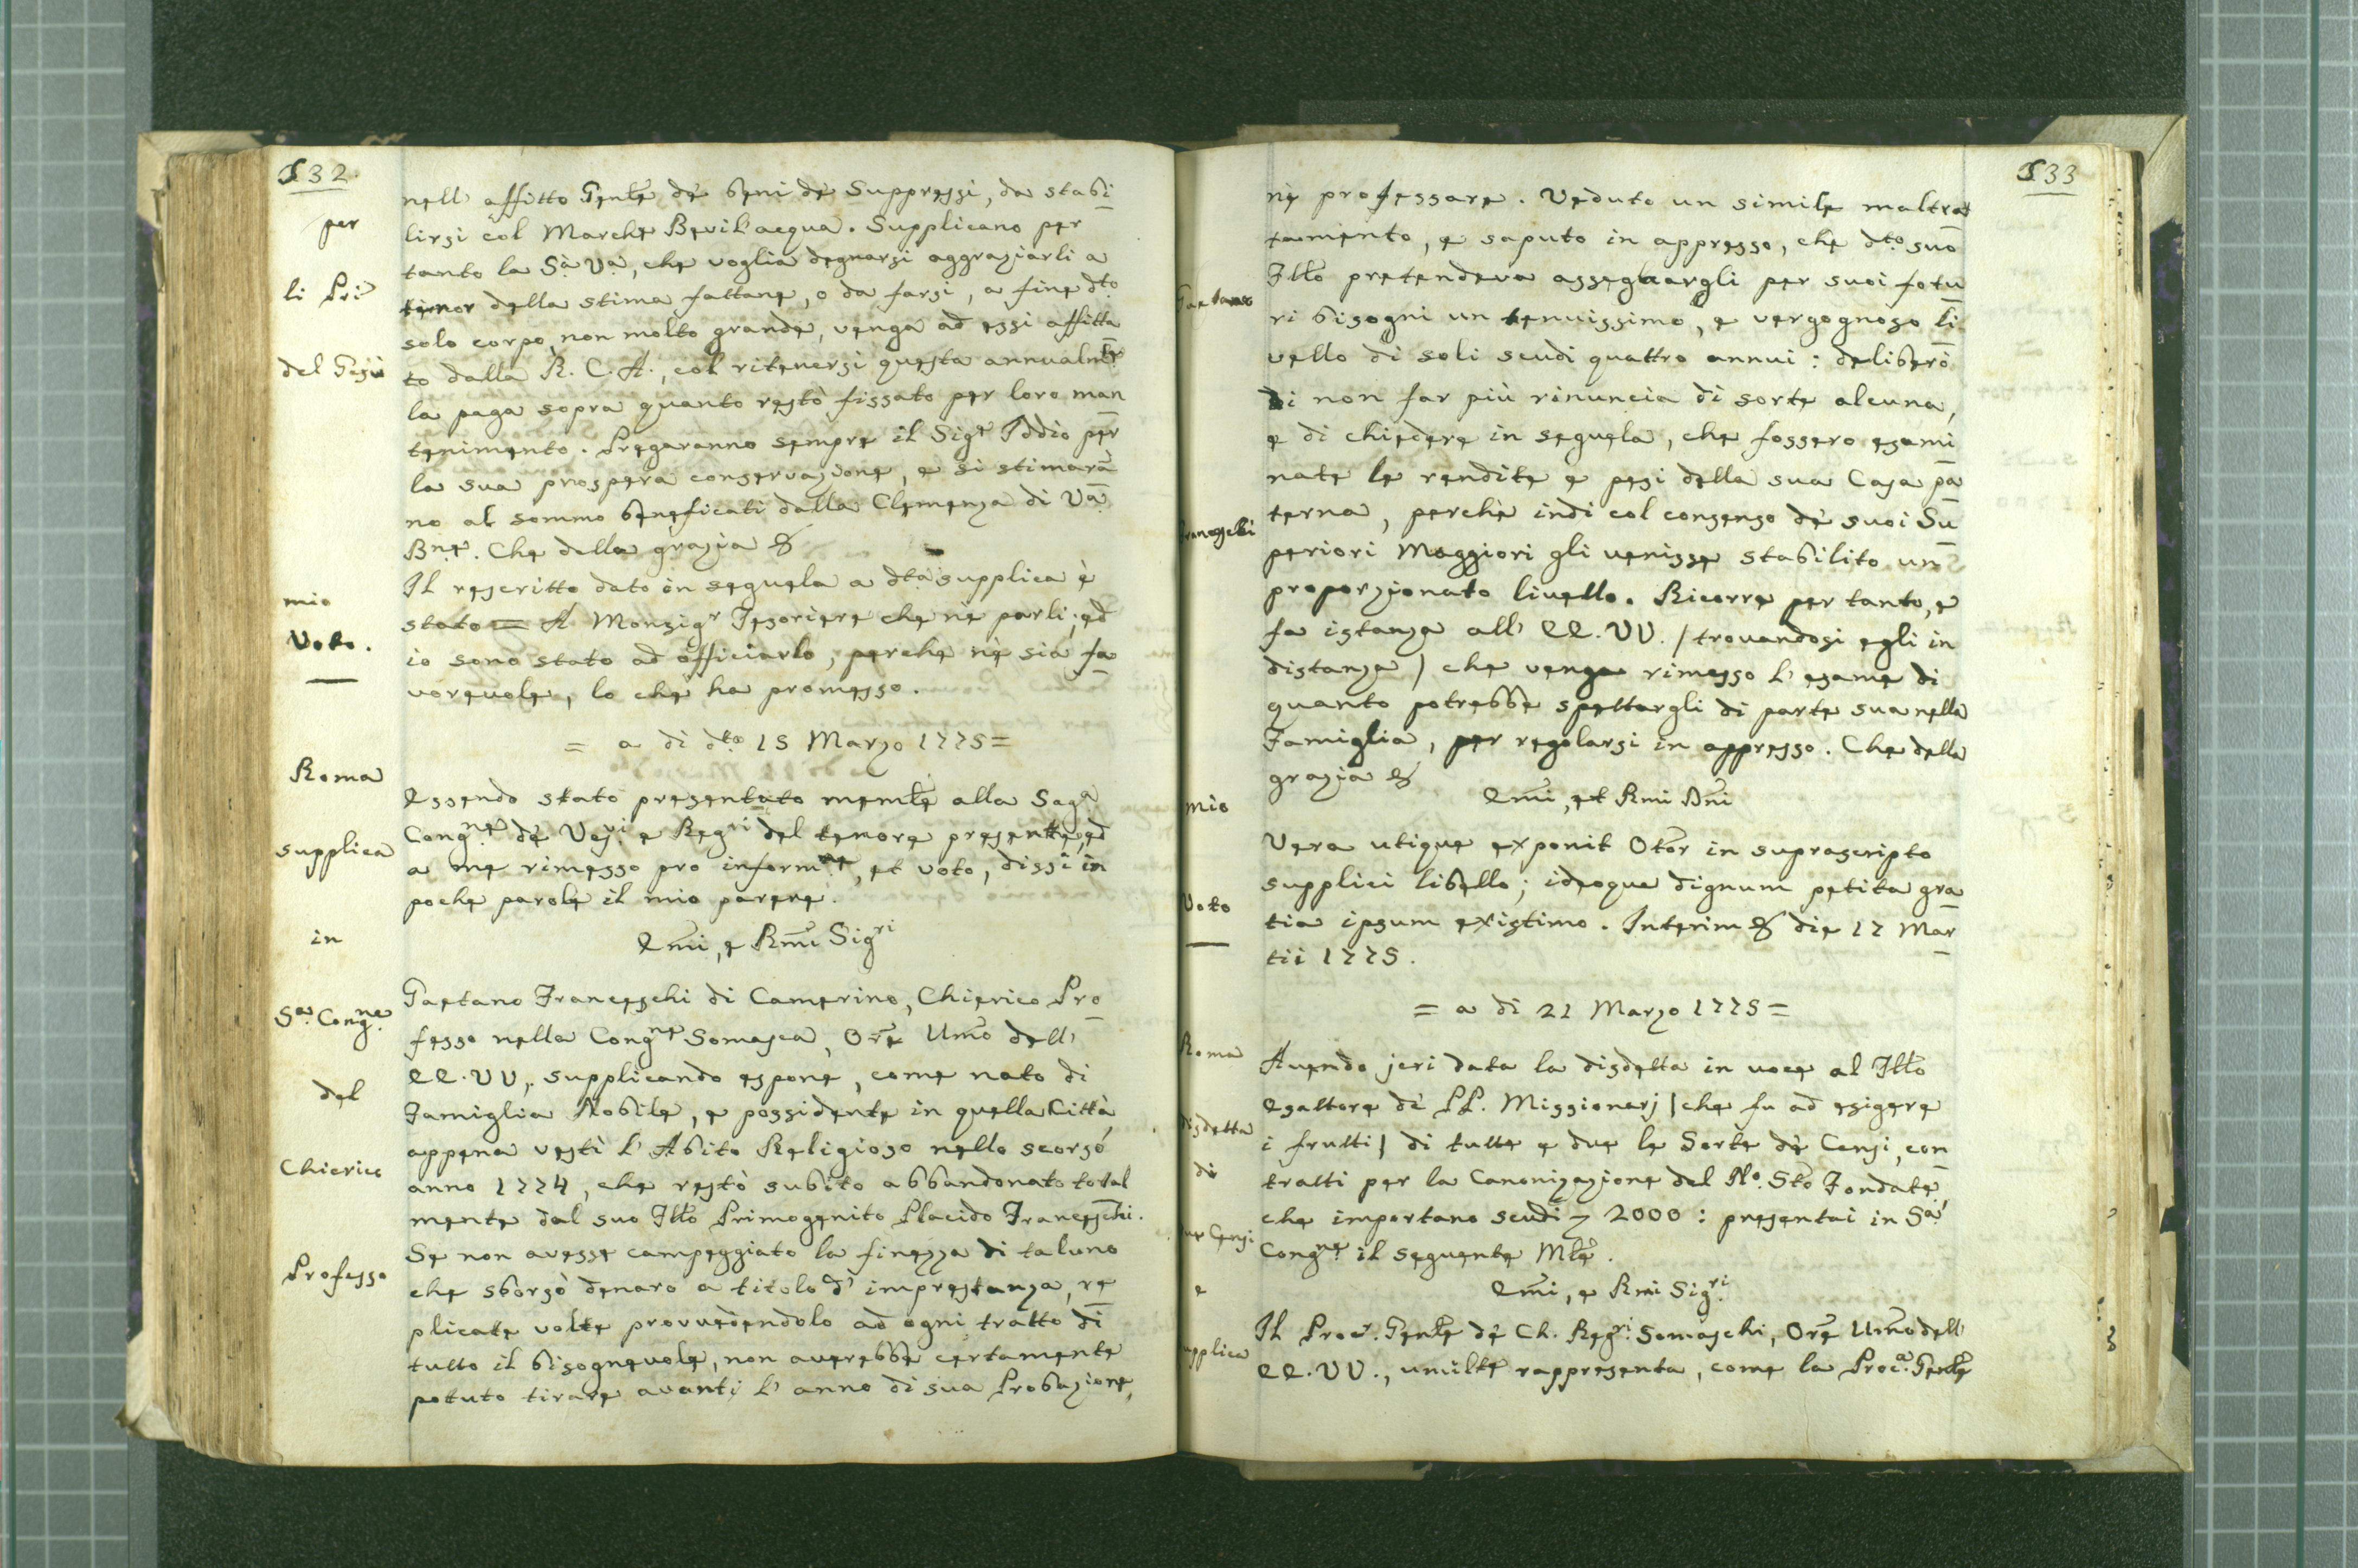 532
per
li Pri
del Gesù
mio
Voto.
Roma
supplica
in
Sa. Congne.
del
Chierico
Professo
nell' affitto Genle de' beni de' Suppressi, da stabi
lirsi col Marche Bevil'acqua. Supplicano per
tanto la Sà Va, che voglia degnarsi aggraziarli a
tenor della stima fattane, o da farsi, a fine dto
solo corpo, non molto grande, venga ad essi affitta
to dalla R. C. A., col ritenersi questa annualmte
la paga sopra quanto restò fissato per loro man
tenimento. Pregaranno sempre il Sigr Iddio per
la sua prospera conservazione, e si stimarà
no al sommo beneficati dalla Clemenza di Va
Bne. Che della grazia &
Il rescritto dato in sequela a dta supplica è
stato = A Monsigr Tesoriere che ne parli; ed
io sono stato ad officiarlo, perche nè sia fa
vorevole, lo che ha promesso.
= a di dto 15 Marzo 1775 =
Essendo stato presentato memle alla Saga
Congne de' Vesvi e Regri del tenore presente, ed
a me rimesso pro informne, et voto, dissi in
poche parole il mio parere.
Emi, e Rmi Sigri
Gaetano Franceschi di Camerino, Chierico Pro
fesso nella Congne Somasca, Ore Umo dell'
EE. VV., supplicando espone, come nato di
Famiglia Nobile, e possidente in quella Città,
appena vestì l' Abito Religioso nello scorso
anno 1774, che restò subito abbandonato total
mente dal suo Fllo Primogenito Placido Franceschi.
Se non avesse campeggiato la finezza di taluno
che sborsò denaro a titolo d' imprestanza, re
plicate volte provvedendolo ad ogni tratto di
tutto il bisognevole, non averebbe certamente
potuto tirare avanti l' anno di sua Probazione,
533
Gaetano
Franceschi
mio
Voto
Roma
disdetta
di
due Censi
e
supplica
nè professare. Veduto un simile maltrat
tamento, e saputo in appresso, che dto suo
Fllo pretendeva assegnargli per suoi fotu
ri bisogni un tenuissimo, e vergognoso li
vello di soli scudi quattro annui: deliberò
di non far più rinuncia di sorte alcuna,
e di chiedere in sequela, che fossero esami
nate le rendite e pesi della sua Casa pa
terna, perchè indi col consenso de' suoi Su
periori Maggiori gli venisse stabilito un
proporzionato livello. Ricorre per tanto, e
fa istanza all' EE. VV. / trovandosi egli in
distanza / che venga rimesso l' esame di
quanto potrebbe spettargli di parte sua nella
Famiglia, per regolarsi in appresso. Che della
grazia &
Emi, et Rmi Dni
Vera utique exponit Otor in suprascripto
supplici libello; ideoque dignum petita gra
tia ipsum existimo. Interim & die 17 Mar
tii 1775.
= a di 21 Marzo 1775 =
Avendo jeri data la disdetta in voce al Fllo
Esattore de' PP. Missionarj / che fu ad esigere
i frutti / di tutte e due le Sorte de' Censi, con
tratti per la Canonizazione del No. Sto Fondate
che importano scudi 2000: presentai in Sa
Congne il seguente Mle.
Emi, e Rmi Sigri
Il Procr. Genle de' Ch. Regri Somaschi, Ore Umo dell'
EE. VV., umilte rappresenta, come la Proca. Genle